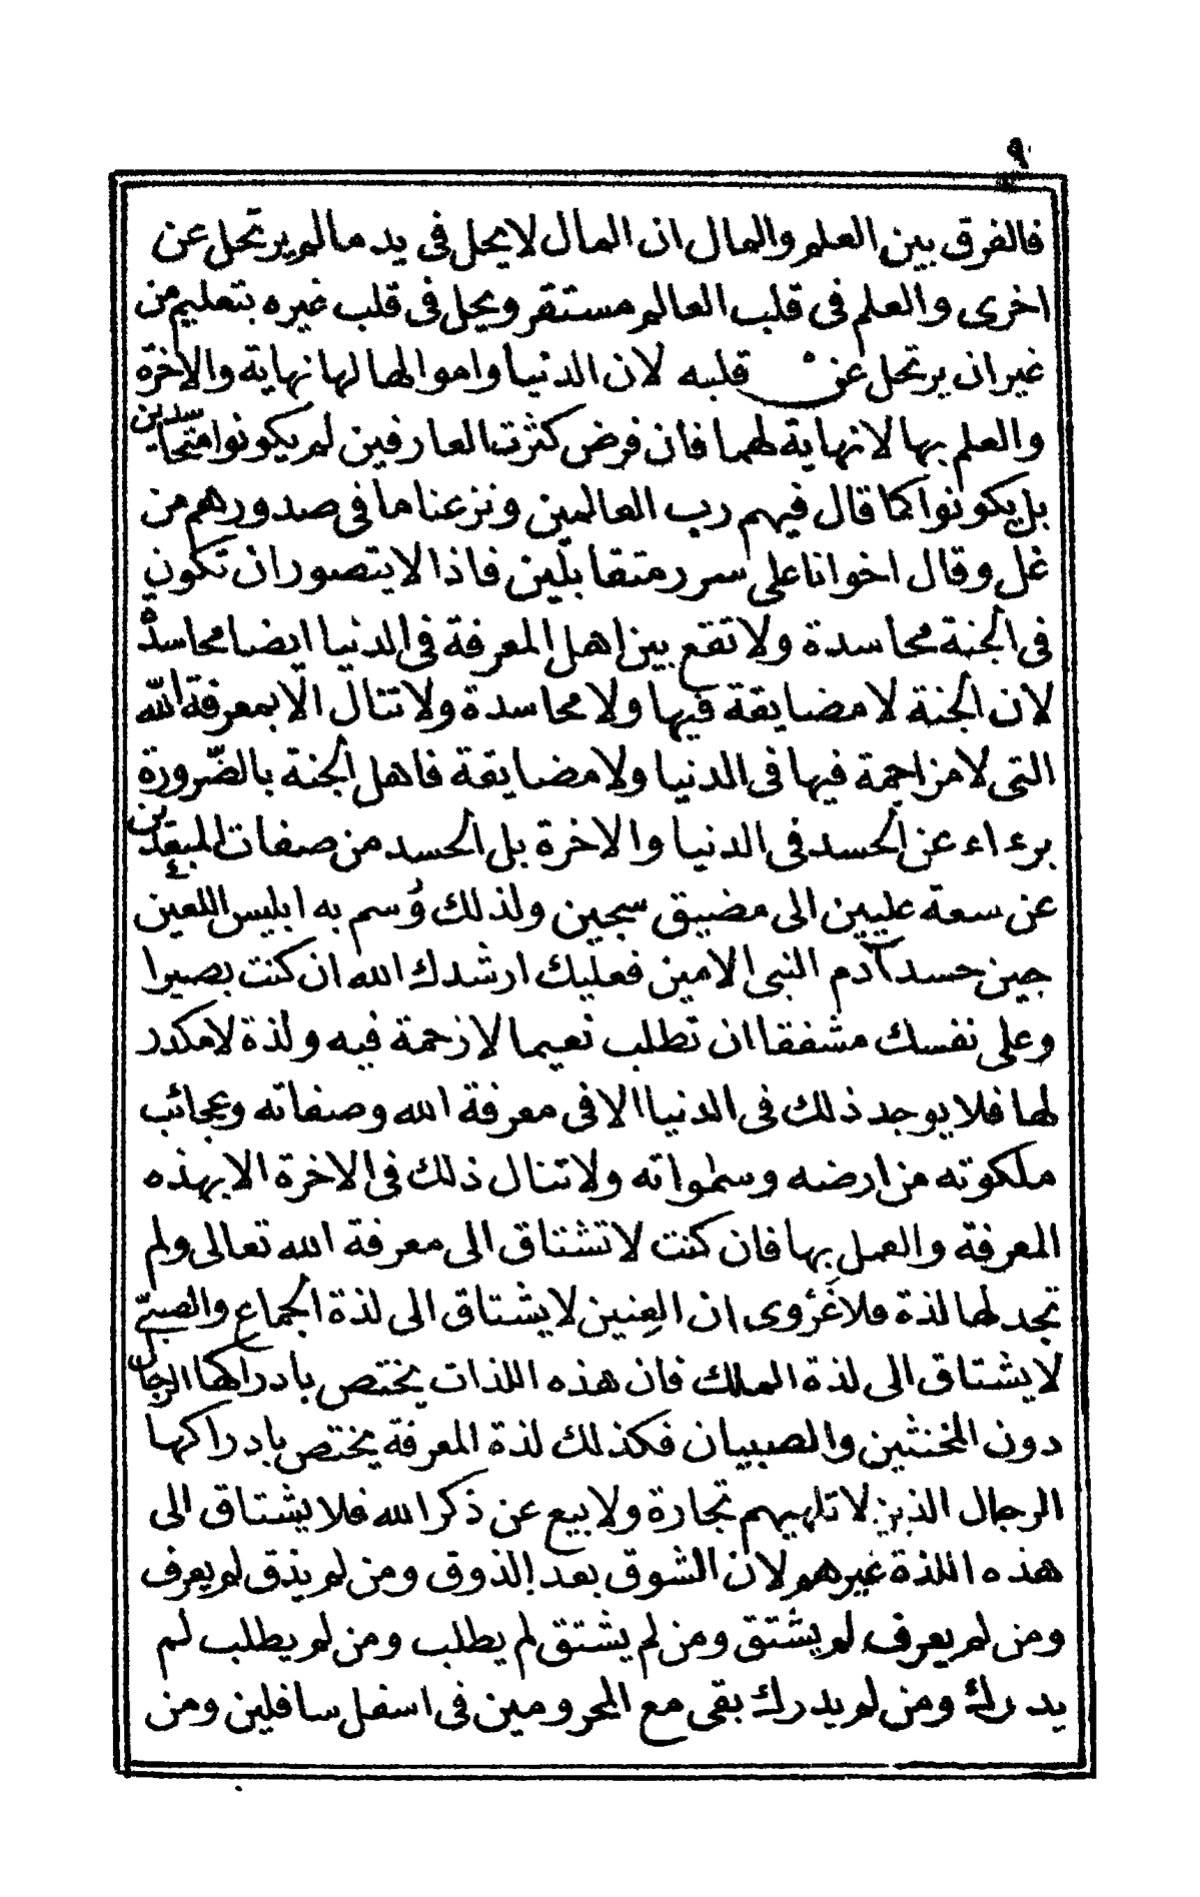 ٩
فالفرق بين العلم والمال ان المال لا يحل فى يد مالم يرتحل عن
اخرى والعلم فى قلب العالم مستقر ويحل فى قلب غيره بتعليم من
غير ان يرتحل عن قلبه لان الدنيا واموالها لها نهاية والاخرة
والعلم بها لا نهاية لهما فان فرض كثرت العارفين لم يكونوا متحاسدين
بل يكونوا كما قال فيهم رب العالمين ونزعنا ما فى صدورهم من
غل وقال اخوانا على سرر متقابلين فاذا لا يتصور ان تكون
فى الجنة محاسدة ولا تقع بين اهل المعرفة فى الدنيا ايضا محاسدة
لان الجنة لا مضايقة فيها ولا محاسدة ولا تنال الا بمعرفة الله
التى لا مزاحمة فيها فى الدنيا ولا مضايقة فاهل الجنة بالضّرورة
برءاء عن الحسد فى الدنيا والاخرة بل الحسد من صفات المبعدين
عن سعة عليين الى مضيق سجين ولذلك وُسم به ابليس اللعين
حين حسد آدم النبى الامين فعليك ارشدك الله ان كنت بصيرا
وعلى نفسك مشفقا ان تطلب نعيما لا زحمة فيه ولذة لا مكدر
لها فلا يوجد ذلك فى الدنيا الا فى معرفة الله وصفاته وعجائب
ملكوته من ارضه وسمٰواته ولا تنال ذلك فى الاخرة الا بهذه
المعرفة والعمل بها فان كنت لا تشتاق الى معرفة الله تعالى ولم
تجد لها لذة فلا غَرْوى ان العِنين لا يشتاق الى لذة الجماع والصبىّ
لا يشتاق الى لذة الملك فان هذه اللذات يختص بادراكها الرجال
دون المخنثين والصبيان فكذلك لذة المعرفة يختص بادراكها
الرجال الذين لا تلهيهم تجارة ولا بيع عن ذكر الله فلا يشتاق الى
هذه اللذة غيرهم لان الشوق بعد الذوق ومن لم يذق لم يعرف
ومن لم يعرف لم يشتق ومن لم يشتق لم يطلب ومن لم يطلب لم
يدرك ومن لم يدرك بقى مع المحرومين فى اسفل سافلين ومن